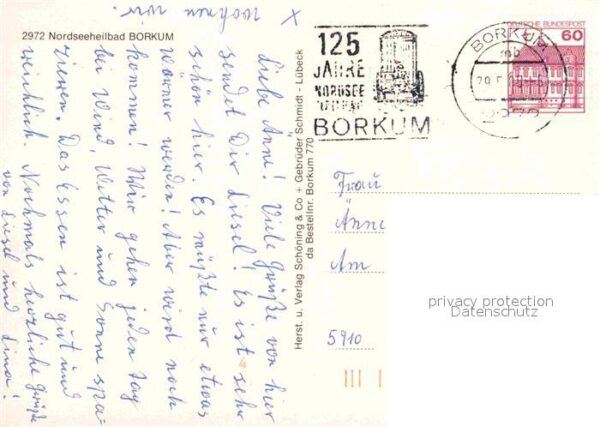 2972 Nordseeheilbad BORKUM
X wohnen wir.
Liebe Änne! Viele Grüße von hier
sendet Dir Liesel! Es ist sehr
schön hier. Es müßte nur etwas
wärmer werden! Aber wird noch
kommen! Wir gehen jeden Tag
bei Wind, Wetter und Sonne spa-
zieren. Das Essen ist gut und
reichlich. Nochmals herzliche Grüße
von Liesel und Lina!
Herst. u. Verlag Schöning & Co + Gebrüder Schmidt - Lübeck
da Bestellnr. Borkum 770
125
JAHRE
NORDSEE
HEILBAD
BORKUM
BORKUM
mb
2972
DEUTSCHE BUNDESPOST
60
Frau
Änne
Am
5910
privacy protection
Datenschutz